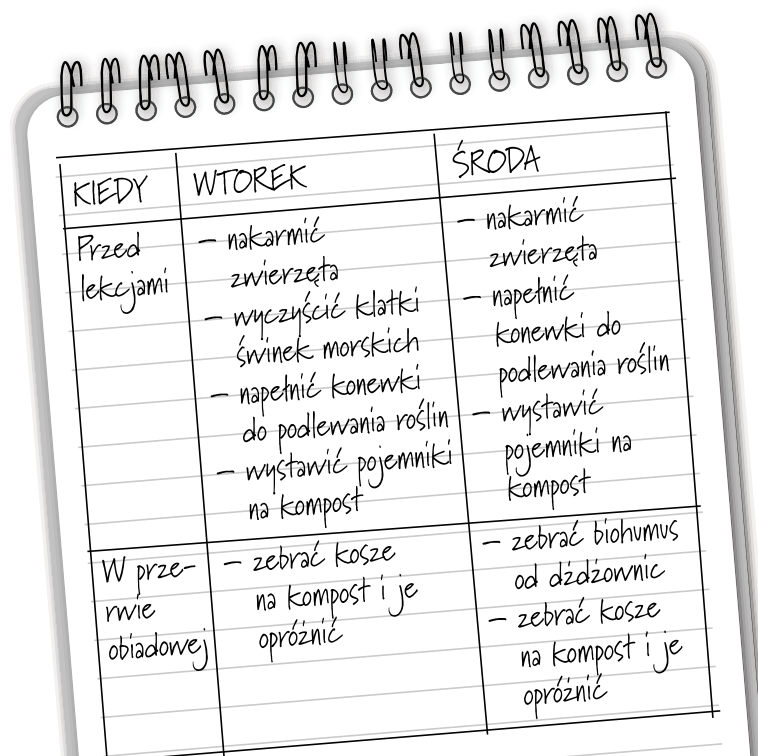 KIEDY
WTOREK
ŚRODA
Przed
lekcjami
– nakarmić
zwierzęta
– wyczyścić klatki
świnek morskich
– napełnić konewki
do podlewania roślin
– wystawić pojemniki
na kompost
– nakarmić
zwierzęta
– napełnić
konewki do
podlewania roślin
– wystawić
pojemniki na
kompost
W prze–
rwie
obiadowej
– zebrać kosze
na kompost i je
opróżnić
– zebrać biohumus
od dżdżownic
– zebrać kosze
na kompost i je
opróżnić